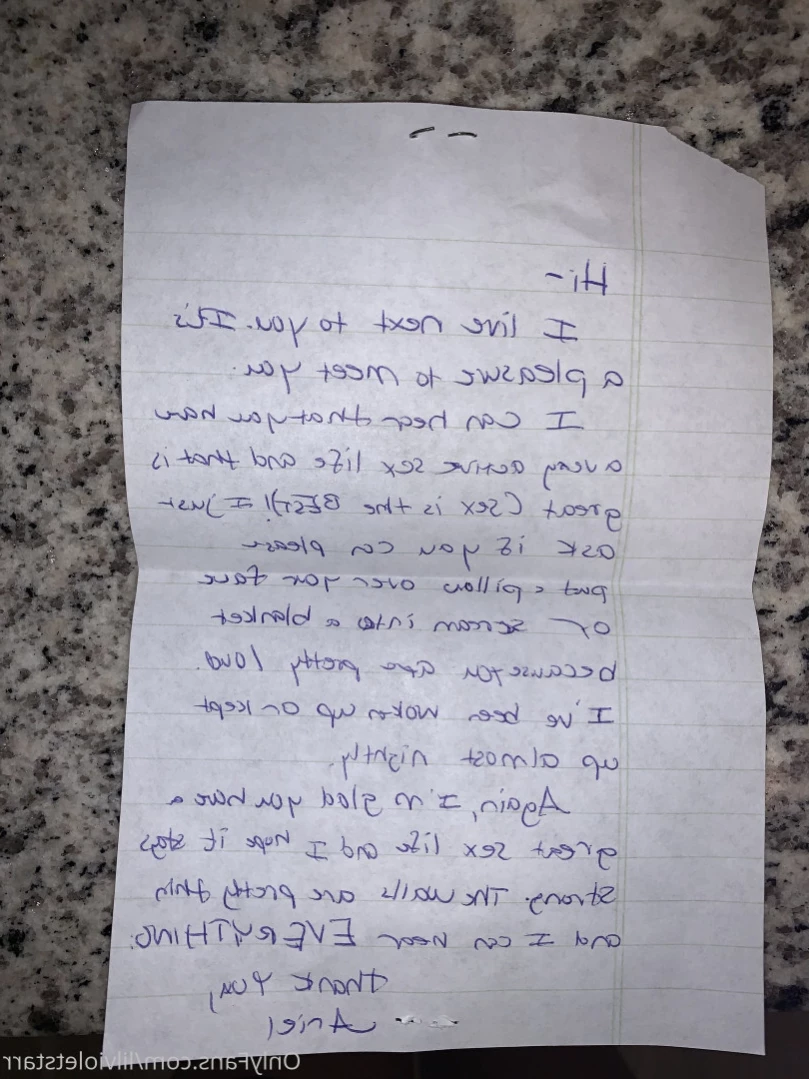 Hi-
I live next to you. It's
a pleasure to meet you.
I can hear that you have
a very active sex life and that is
great (sex is the BEST)! I just
ask if you can please
put a pillow over your face
or scream into a blanket
because you are pretty loud.
I've been woken up or kept
up almost nightly.
Again, I'm glad you have a
great sex life and I hope it stays
strong. The walls are pretty thin
and I can hear EVERYTHING.
Thank you,
Ariel
OnlyFans.com/lilvioletstarr